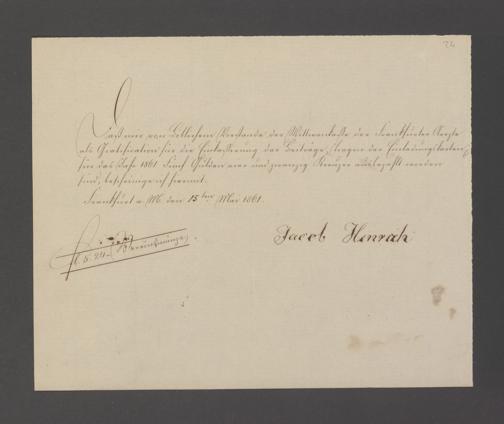 24
Daß mir von Löblichem Vorstande der Wittwenkasse der Frankfurter Aerzte
als Gratification für die Einkassirung der Beiträge, wegen der
für das Jahr 1861 Fünf Gulden und zwanzig Kreuzer ausbezahlt worden
sind, bescheinige ich hiermit.
Frankfurt a. M. den 15ten Mai 1861.
Jacob Henrich
f. 5. 24.